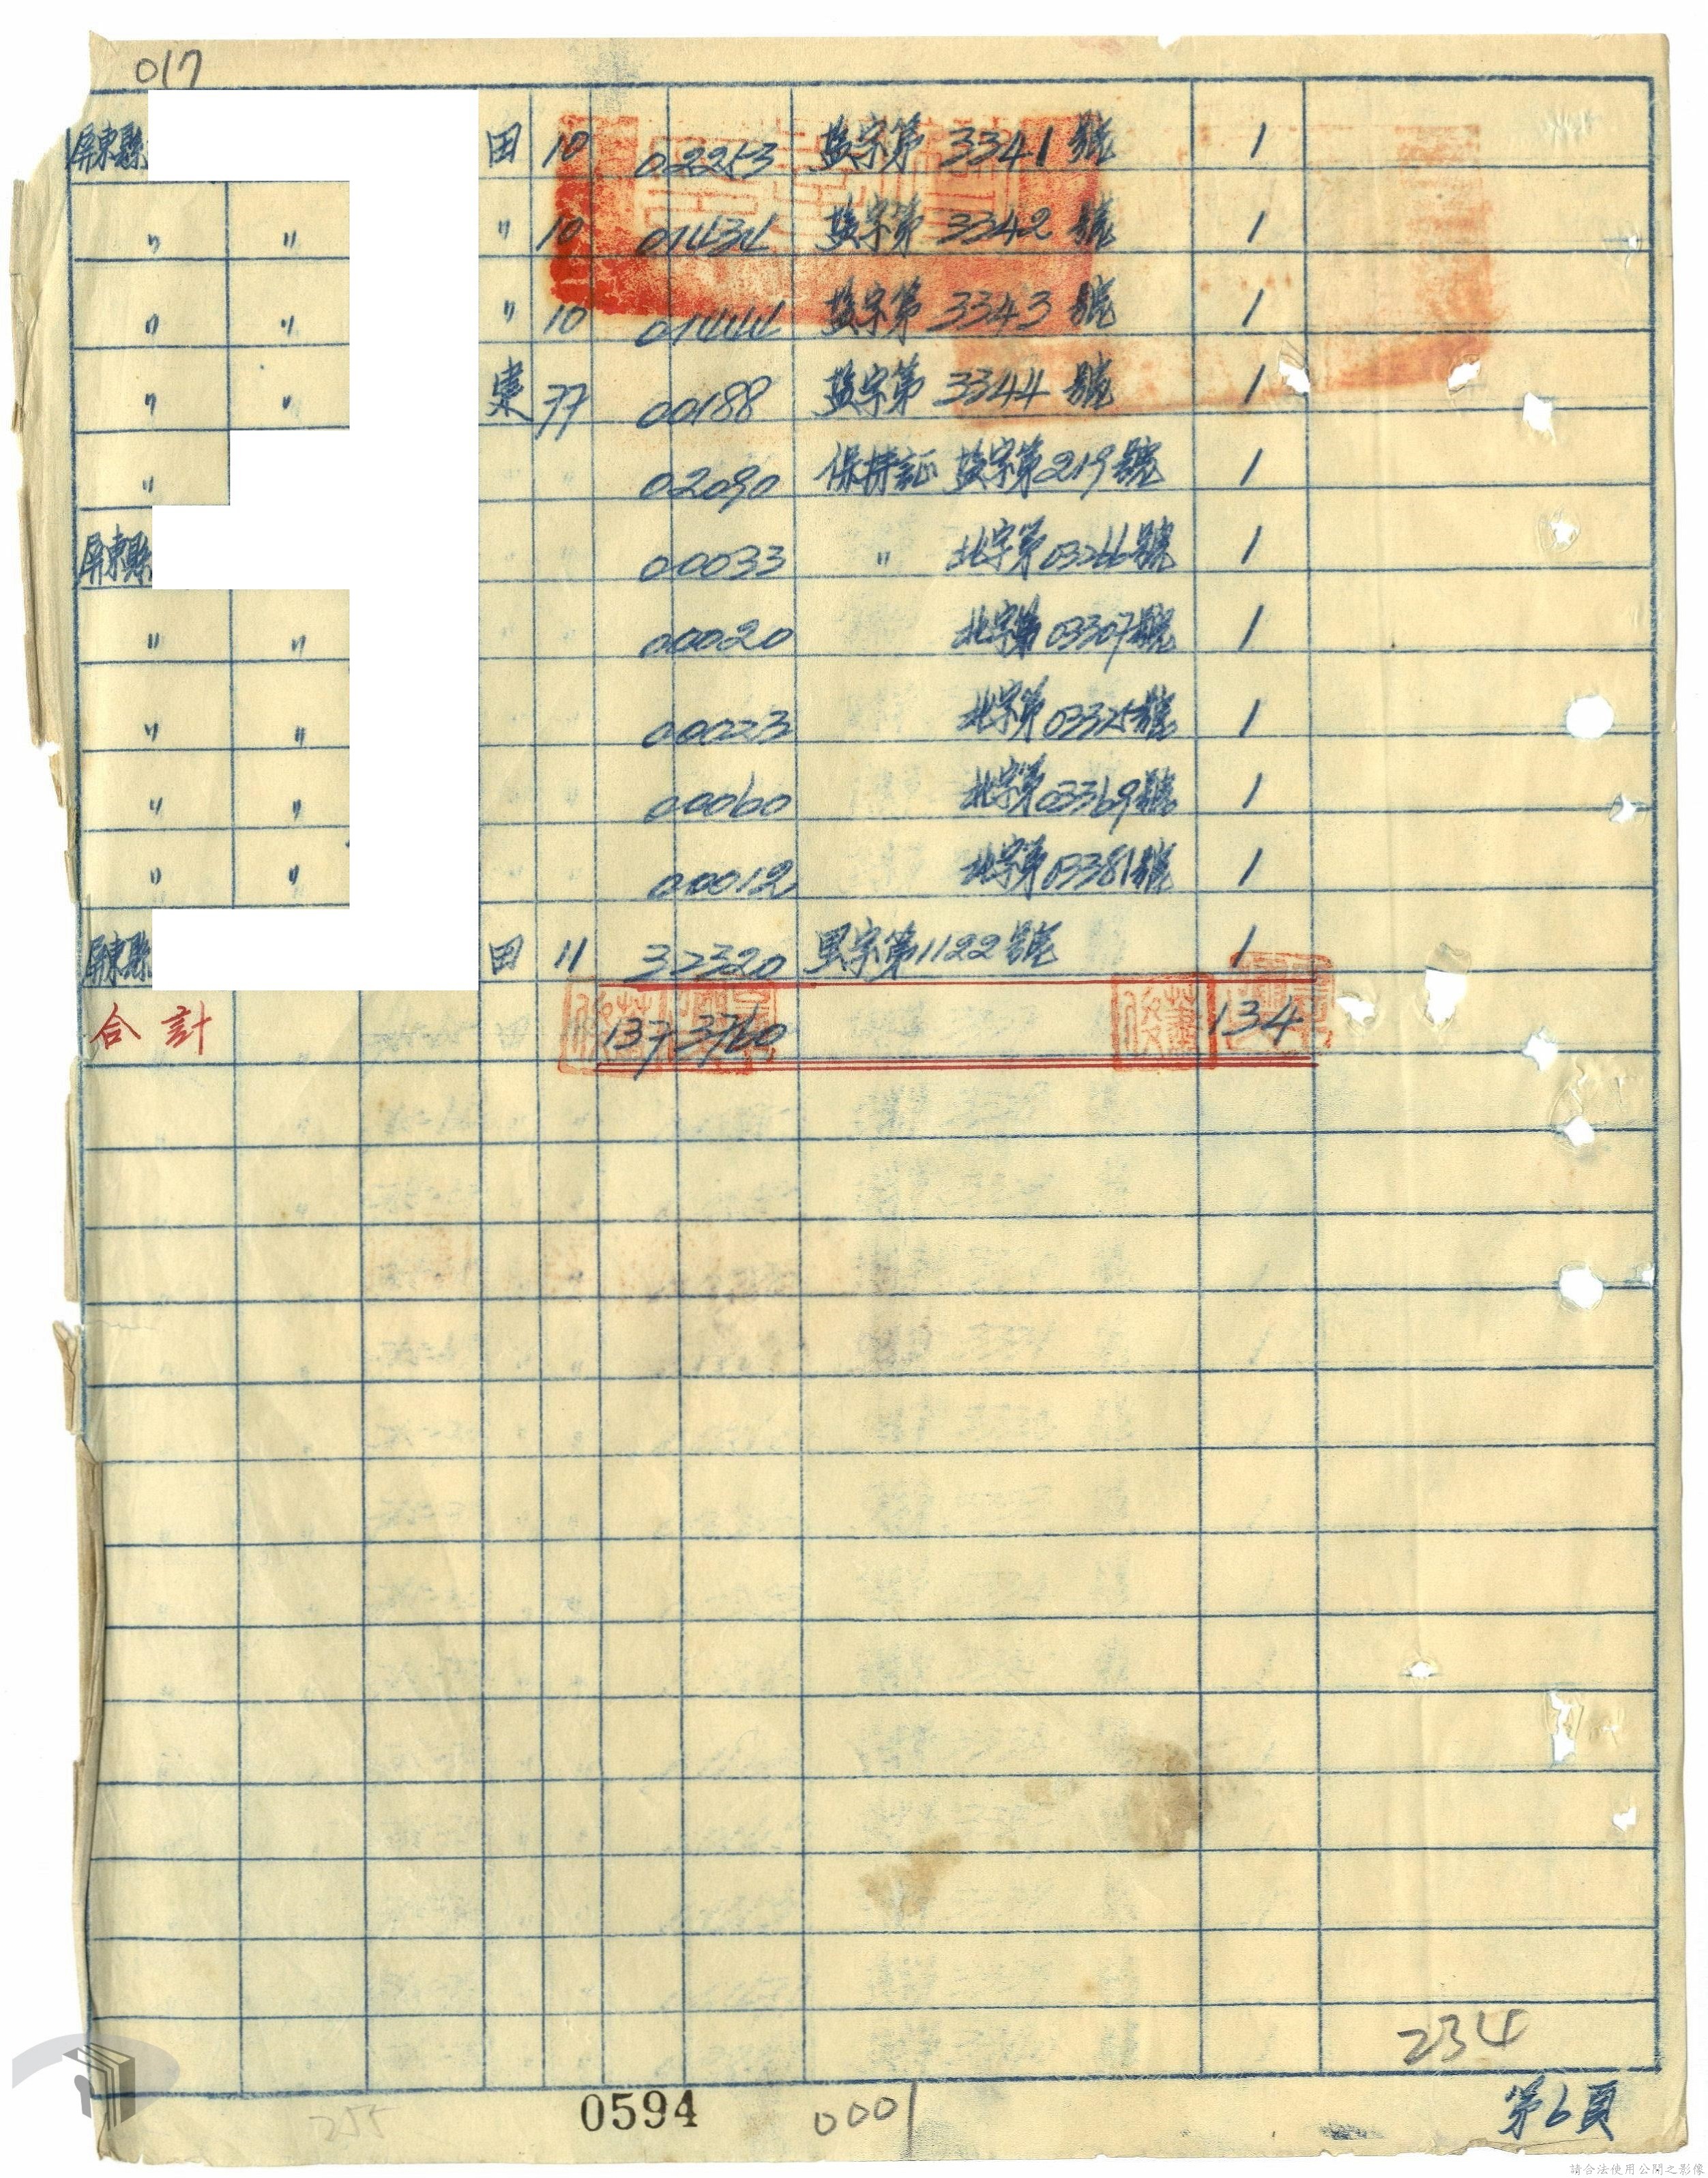 017
屏東縣 田 10 02253 鹽字第 3341 號 1
〃 〃 〃 10 01434 鹽字第 3342 號 1
〃 〃 〃 10 01444 鹽字第 3343 號 1
〃 〃 77 00188 鹽字第 3344 號 1
〃 02090 保持証 鹽字第219號 1
屏東縣 00033 〃 北字第03266號 1
〃 〃 00020 北字第03307號 1
〃 〃 00023 北字第03325號 1
〃 〃 00060 北字第03369號 1
〃 〃 00012 北字第03381號 1
屏東縣 田 11 32320 里字第1122號 1
合計 1373760 134
234
第6頁
255
0594
0001
請合法使用公開之影像